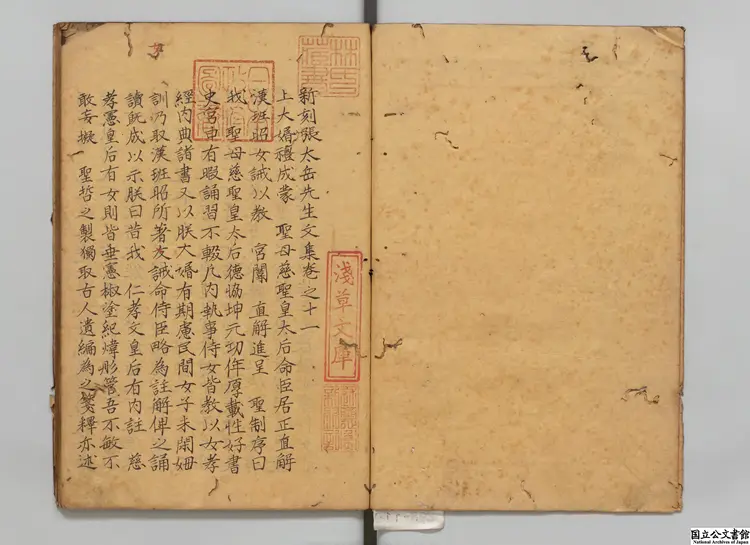 新刻張太岳先生文集卷之十一
上大婚禮成蒙　聖母慈聖皇太后命臣居正直解
漢班昭女誡以教　宮闈　直解進呈　聖制序曰
我　聖母慈聖皇太后德恊坤元功侔厚載性好書
史宮中有暇誦習不輟凡內執事侍女皆教以女孝
經內典諸書又以朕大婚有期慮民間女子未閑姆
訓乃取漢班昭所著友誡命侍臣略為註解俾之誦
讀既成以示朕曰昔我　仁孝文皇后有內註　慈
孝憲皇后有女則皆垂憲椒塗紀煒彤管吾不敏不
敢妄擬　聖哲之製獨取古人遺編為之箋釋亦述
淺草文庫
林氏
藏書
国立公文書館
National Archives of Japan